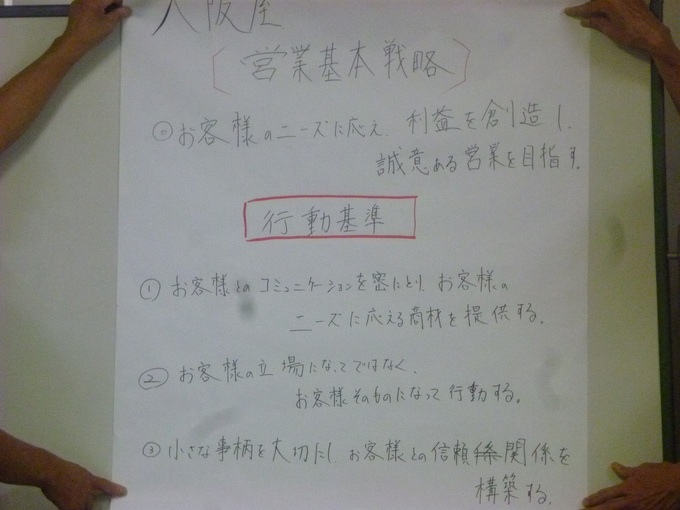 大阪屋
〔営業基本戦略〕
◎お客様のニーズに応え、利益を創造し、
誠意ある営業を目指す。
行動基準
① お客様とのコミュニケーションを密にとり、お客様の
ニーズに応える商材を提供する。
② お客様の立場になってではなく、
お客様そのものになって行動する。
③ 小さな事柄を大切にし、お客様との信頼関係を
構築する。